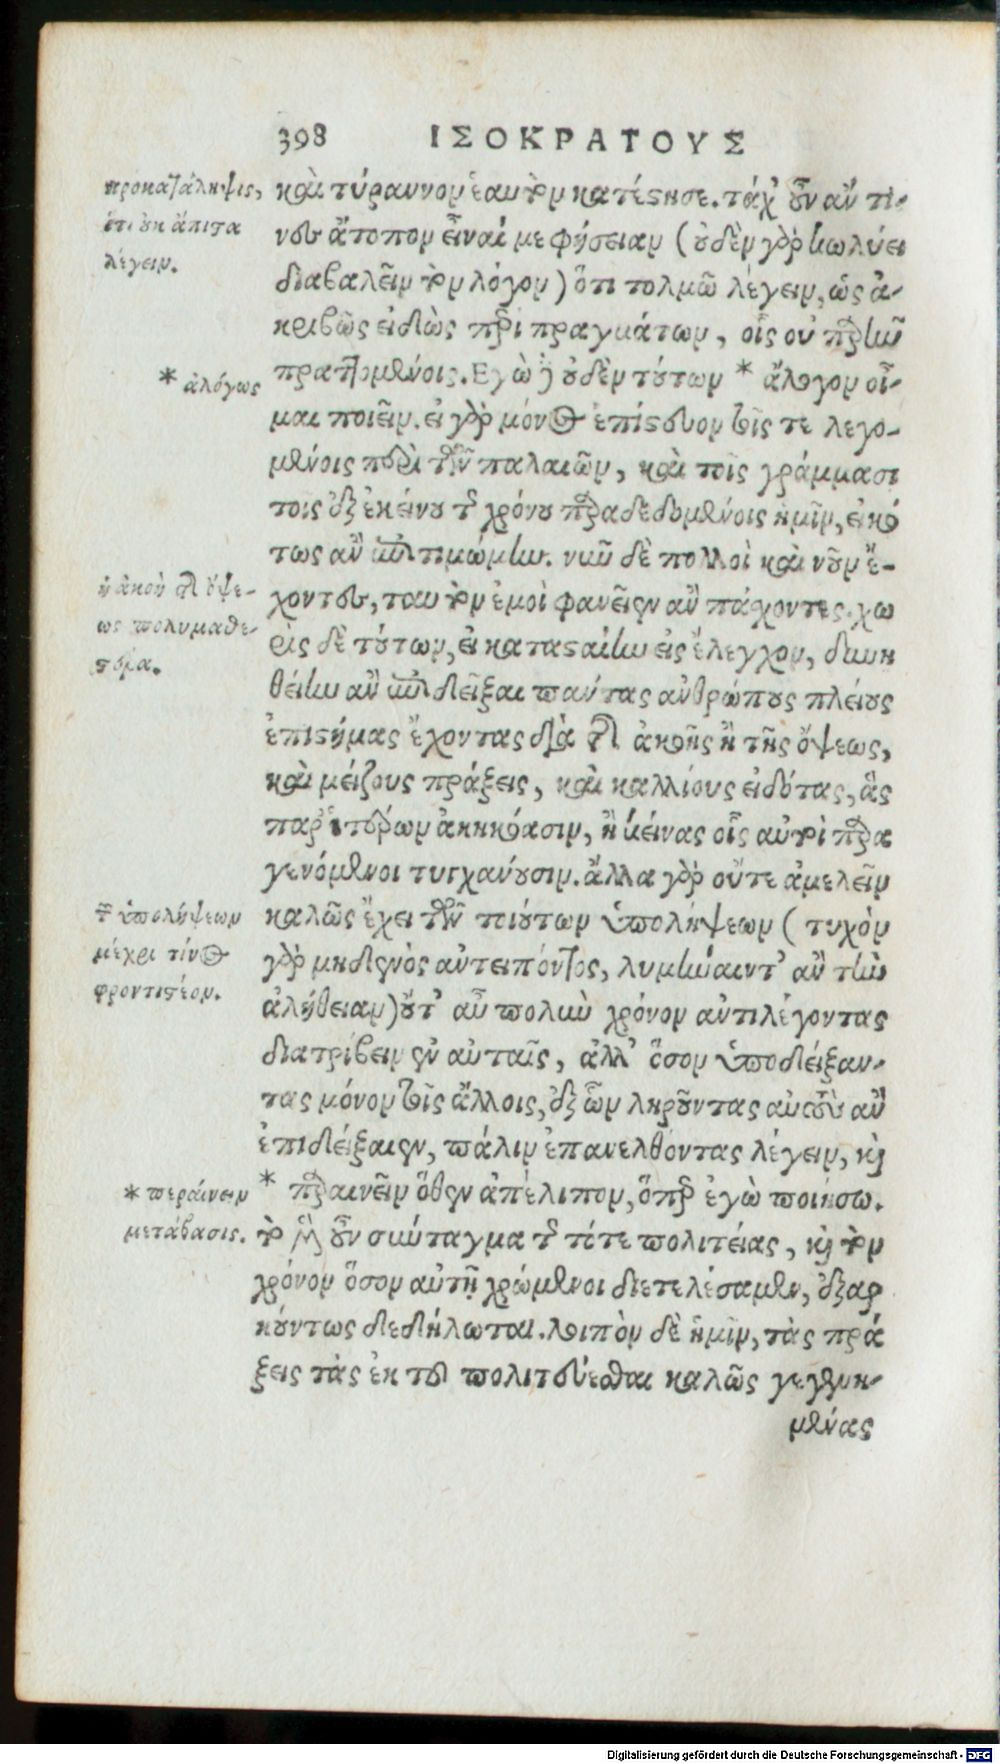 398 ΙΣΟΚΡΑΤΟΥΣ
προκατάληψις,
ὅτι οὐκ ἄπιστα
λέγειν.
καὶ τύραννον ἑαυτὸν κατέστησε. τάχ' οὖν ἄν τι-
νες ἄτοπον εἶναί με φήσειαν (οὐδὲν γὰρ κωλύει
διαβαλεῖν τὸν λόγον) ὅτι τολμῶ λέγειν, ὡς ἀ-
κριβῶς εἰδὼς περὶ πραγμάτων, οἷς οὐ παρῆν
πραττομένοις. Εγὼ δ' οὐδὲν τούτων * ἄλογον οἶ-
* ἀλόγως
μαι ποιεῖν. εἰ γὰρ μόνος ἐπίστευον τοῖς τε λεγο-
μένοις περὶ τῶν παλαιῶν, καὶ τοῖς γράμμασι
τοῖς ἐξ ἐκείνου τοῦ χρόνου παραδεδομένοις ἡμῖν, εἰκό
τως ἂν ἐπιτιμώμην. νῦν δὲ πολλοὶ καὶ νοῦν ἔ-
ἡ ἀκοὴ τῆς ὄψε-
ως πολυμαθε-
στέρα.
χοντες, ταυτὸν ἐμοὶ φανεῖεν ἂν πάσχοντες. χω
ρὶς δὲ τούτων, εἰ κατασταίην εἰς ἔλεγχον, δυνη
θείην ἂν ἐπιδεῖξαι πάντας ἀνθρώπους πλείους
ἐπιστήμας ἔχοντας διὰ τῆς ἀκοῆς ἢ τῆς ὄψεως,
καὶ μείζους πράξεις, καὶ καλλίους εἰδότας, ἃς
παρ' ἑτέρων ἀκηκόασιν, ἢ 'κείνας οἷς αὐτοὶ παρα
γενόμενοι τυγχάνουσιν. ἄλλα γὰρ οὔτε ἀμελεῖν
τῶν ὑπολήψεων
μέχρι τίνος
φροντιστέον.
καλῶς ἔχει τῶν τοιούτων ὑπολήψεων (τυχὸν
γὰρ μηδενὸς ἀντειπόντος, λυμήναιντ' ἂν τὴν
ἀλήθειαν) οὔτ' αὖ πολὺν χρόνον ἀντιλέγοντας
διατρίβειν ἐν αὐταῖς, ἀλλ' ὅσον ὑποδείξαν-
τας μόνον τοῖς ἄλλοις, ἐξ ὧν ληροῦντας αὐτοὺς ἂν
ἐπιδείξαιεν, πάλιν ἐπανελθόντας λέγειν, καὶ
* περαίνειν
μετάβασις.
* παραινεῖν ὅθεν ἀπέλιπον, ὅπερ ἐγὼ ποιήσω.
τὸ μὲν οὖν σύνταγμα τῆς τότε πολιτείας, καὶ τὸν
χρόνον ὅσον αὐτῇ χρώμενοι διετελέσαμεν, ἐξαρ
κούντως δεδήλωται. λοιπὸν δὲ ἡμῖν, τὰς πρά
ξεις τὰς ἐκ τοῦ πολιτεύεσθαι καλῶς γεγενη-
μένας
Digitalisierung gefördert durch die Deutsche Forschungsgemeinschaft - DFG